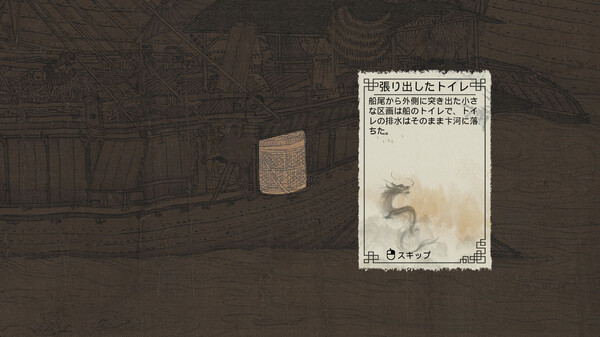 張り出したトイレ
船尾から外側に突き出た小さ
な区画は船のトイレで、トイ
レの排水はそのまま卞河に落
ちた。
スキップ